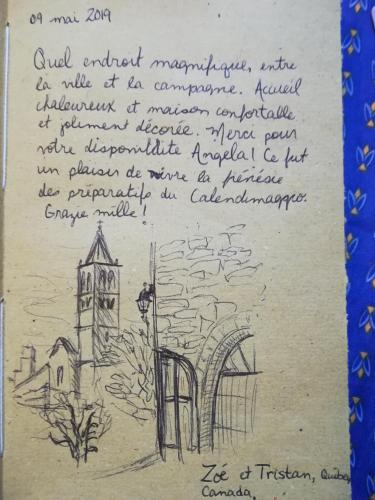 09 mai 2019
Quel endroit magnifique, entre
la ville et la campagne. Accueil
chaleureux et maison confortable
et joliment décorée. Merci pour
votre disponibilité Angela! Ce fut
un plaisir de vivre la frénésie
des préparatifs du Calendimaggio.
Grazie mille!
Zoé et Tristan, Québec,
Canada,